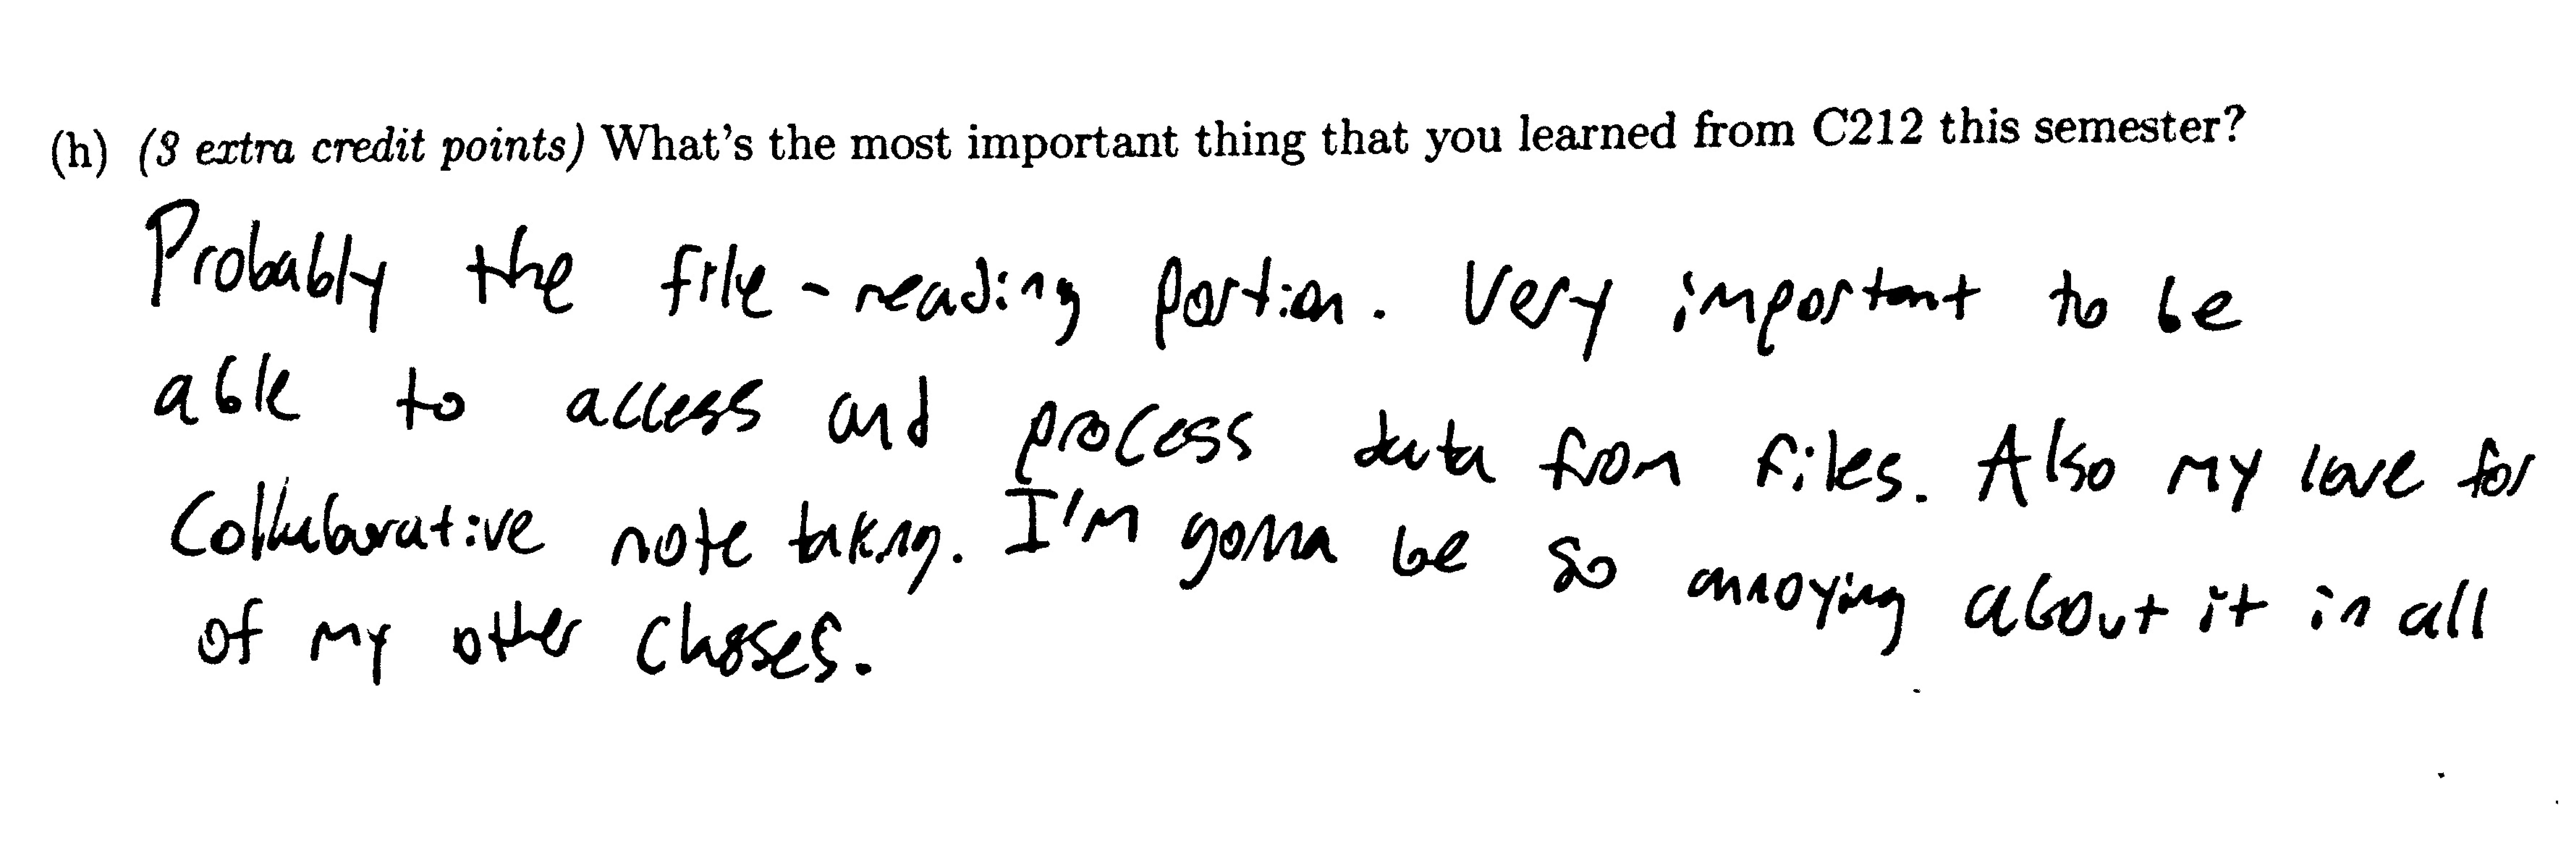 (h) (3 extra credit points) What's the most important thing that you learned from C212 this semester?
Probably the file-reading portion. Very important to be
able to access and process data from files. Also my love for
Collaborative note taking. I'm gonna be so annoying about it in all
of my other classes.